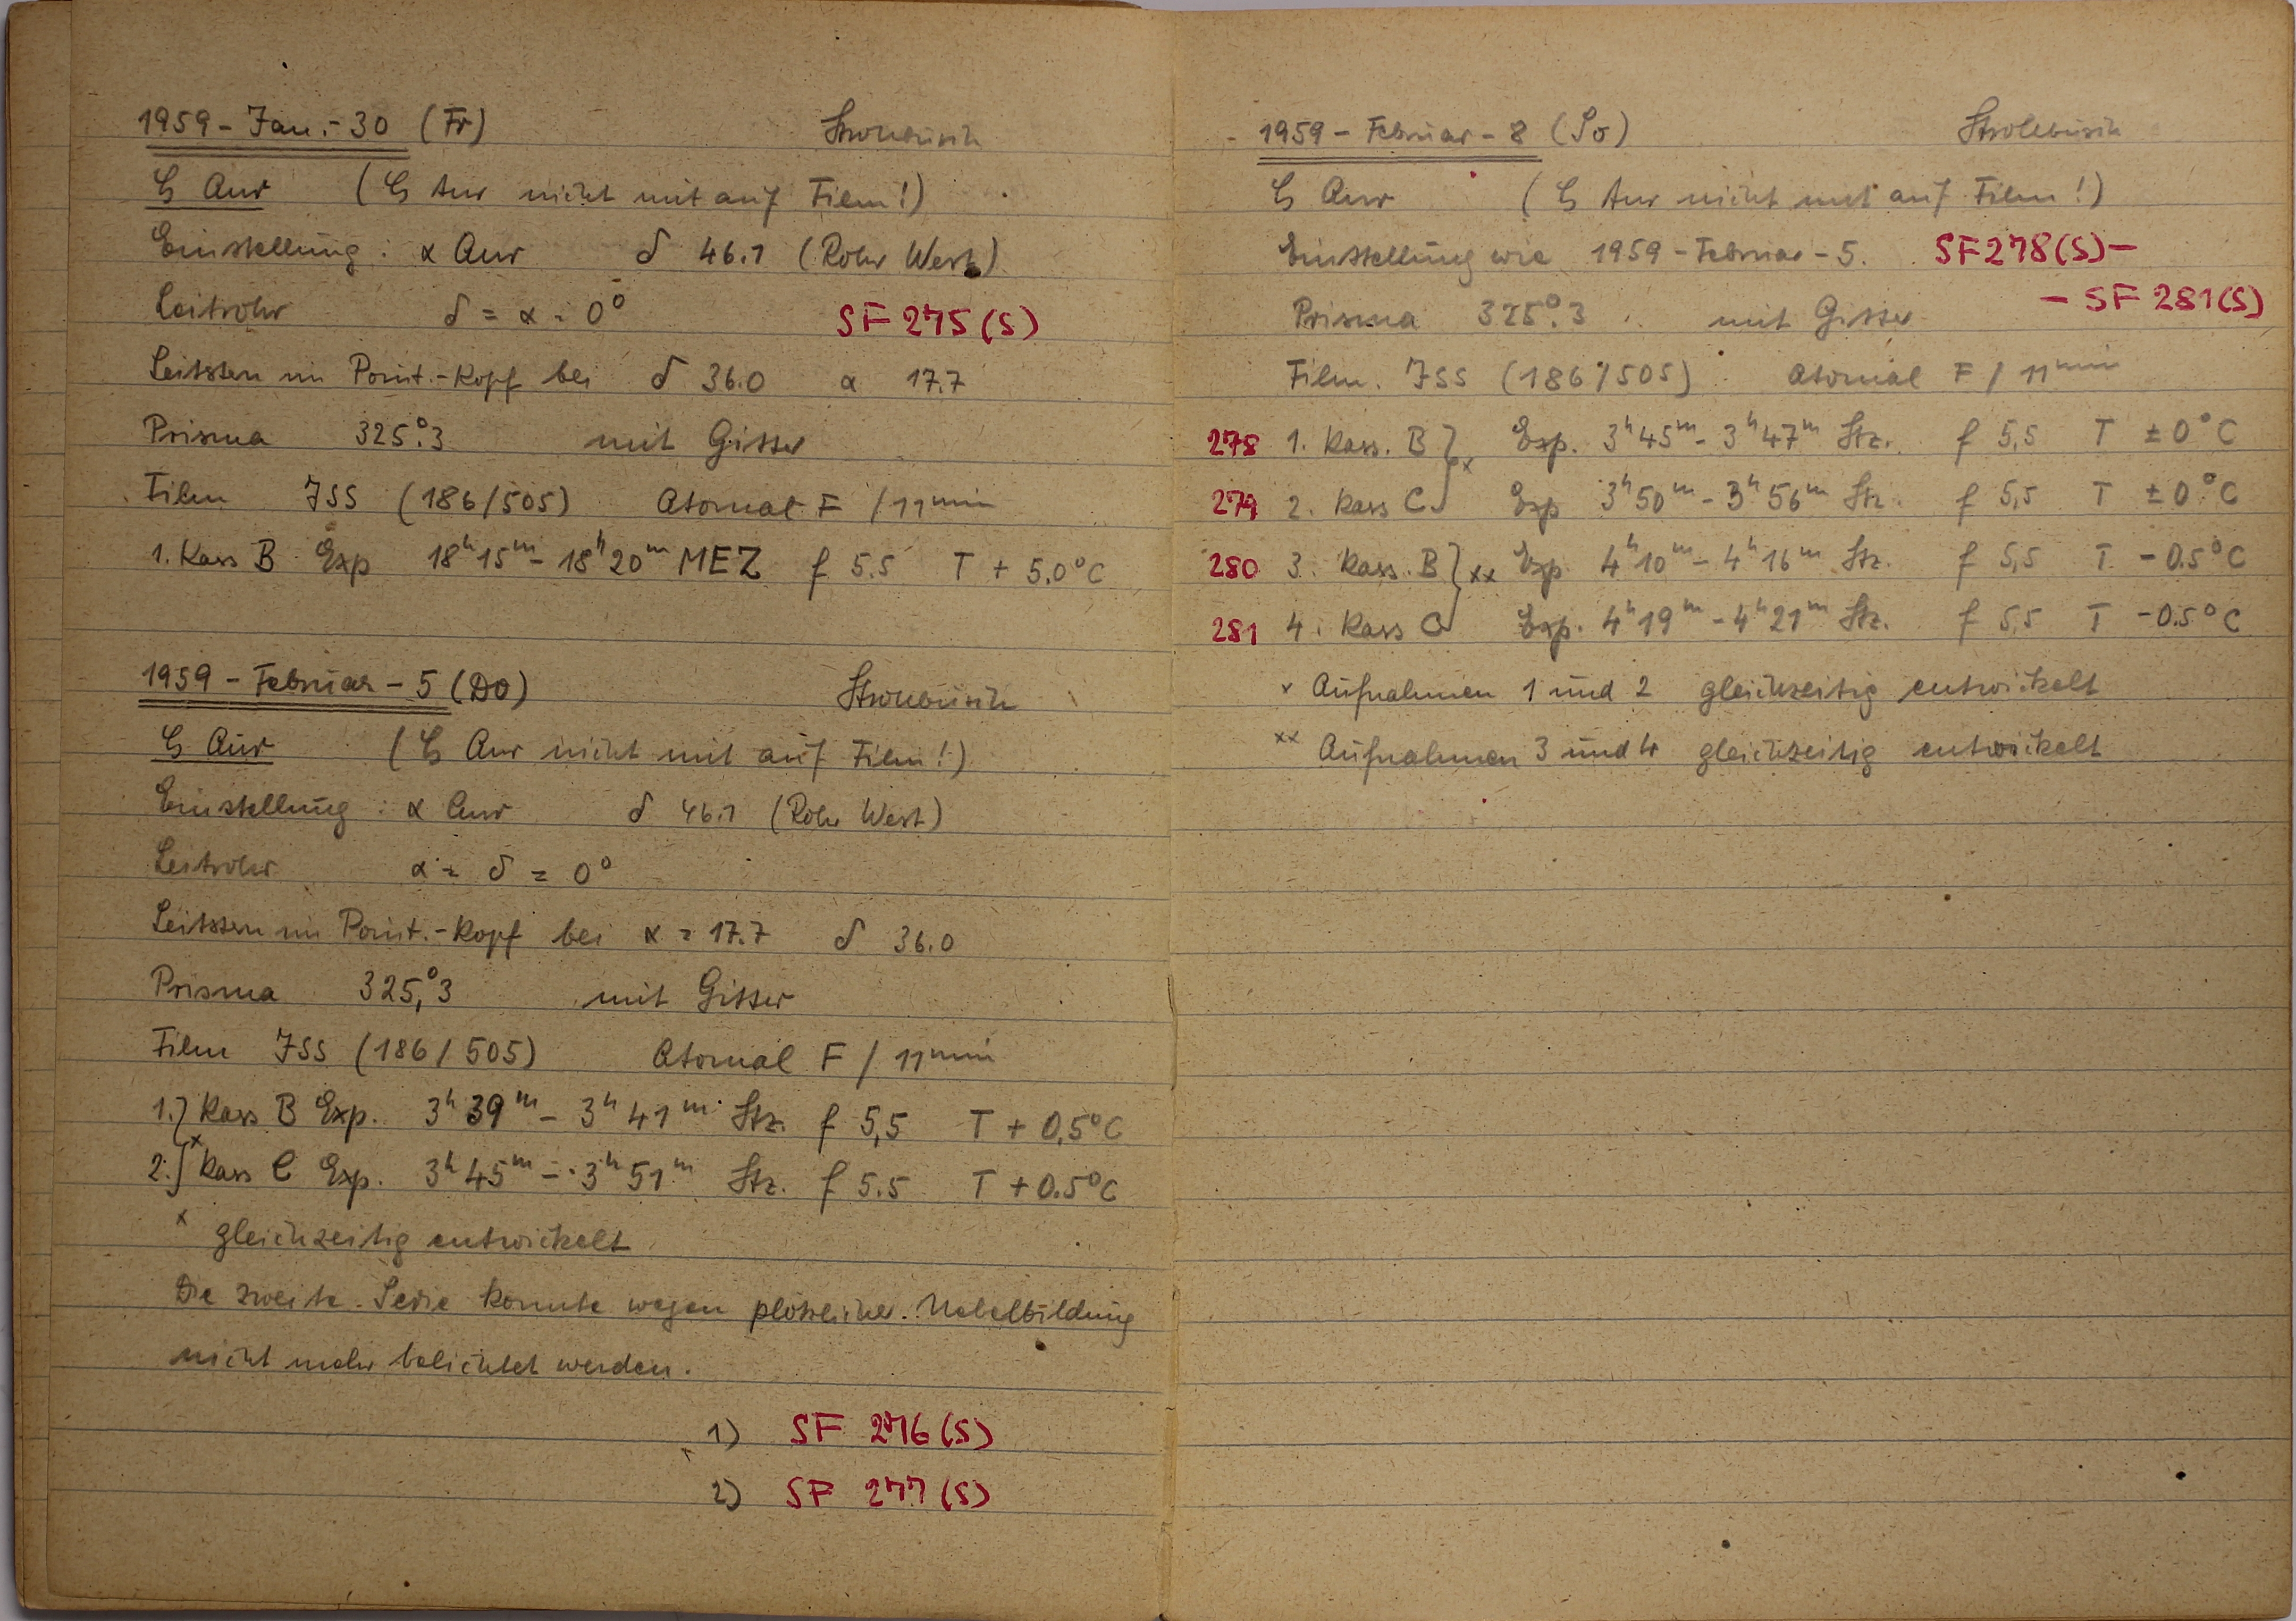 1959 - Jan. - 30 (Fr) Strohbusch
ζ Aur (ζ Aur nicht mit auf Film!)
Einstellung: α Aur δ 46.1 (Rohr West)
Leitrohr δ = α = 0° SF 275 (S)
Leitstern im Point.-Kopf bei δ 36.0 α 17.7
Prisma 325°.3 mit Gitter
Film ISS (186/505) Atomal F / 11 min
1. Kass B Exp 18h 15m - 18h 20m MEZ f 5.5 T + 5.0°C
1959 - Februar - 5 (Do) Strohbusch
ζ Aur (ζ Aur nicht mit auf Film!)
Einstellung: α Aur δ 46.1 (Rohr West)
Leitrohr α = δ = 0°
Leitstern im Point.-Kopf bei α = 17.7 δ 36.0
Prisma 325,°3 mit Gitter
Film ISS (186/505) Atomal F / 11 min
1.} Kass B Exp. 3h 39m - 3h 41m Stz. f 5,5 T + 0,5°C
2.} x Kass C Exp. 3h 45m - 3h 51m Stz. f 5.5 T + 0.5°C
x gleichzeitig entwickelt
Die zweite Serie konnte wegen plötzlicher Nebelbildung
nicht mehr belichtet werden.
1) SF 276 (S)
2) SF 277 (S)
1959 - Februar - 8 (So) Strohbusch
ζ Aur (ζ Aur nicht mit auf Film!)
Einstellung wie 1959 - Februar - 5. SF 278 (S) -
- SF 281 (S)
Prisma 325°.3 mit Gitter
Film. ISS (186/505) Atomal F / 11 min
278 1. Kass. B } x Exp. 3h 45m - 3h 47m Stz. f 5,5 T ± 0°C
279 2. Kass C Exp 3h 50m - 3h 56m Stz. f 5,5 T ± 0°C
280 3. Kass. B } xx Exp. 4h 10m - 4h 16m Stz. f 5,5 T - 0.5°C
281 4. Kass C Exp. 4h 19m - 4h 21m Stz. f 5,5 T - 0.5°C
x Aufnahmen 1 und 2 gleichzeitig entwickelt
xx Aufnahmen 3 und 4 gleichzeitig entwickelt